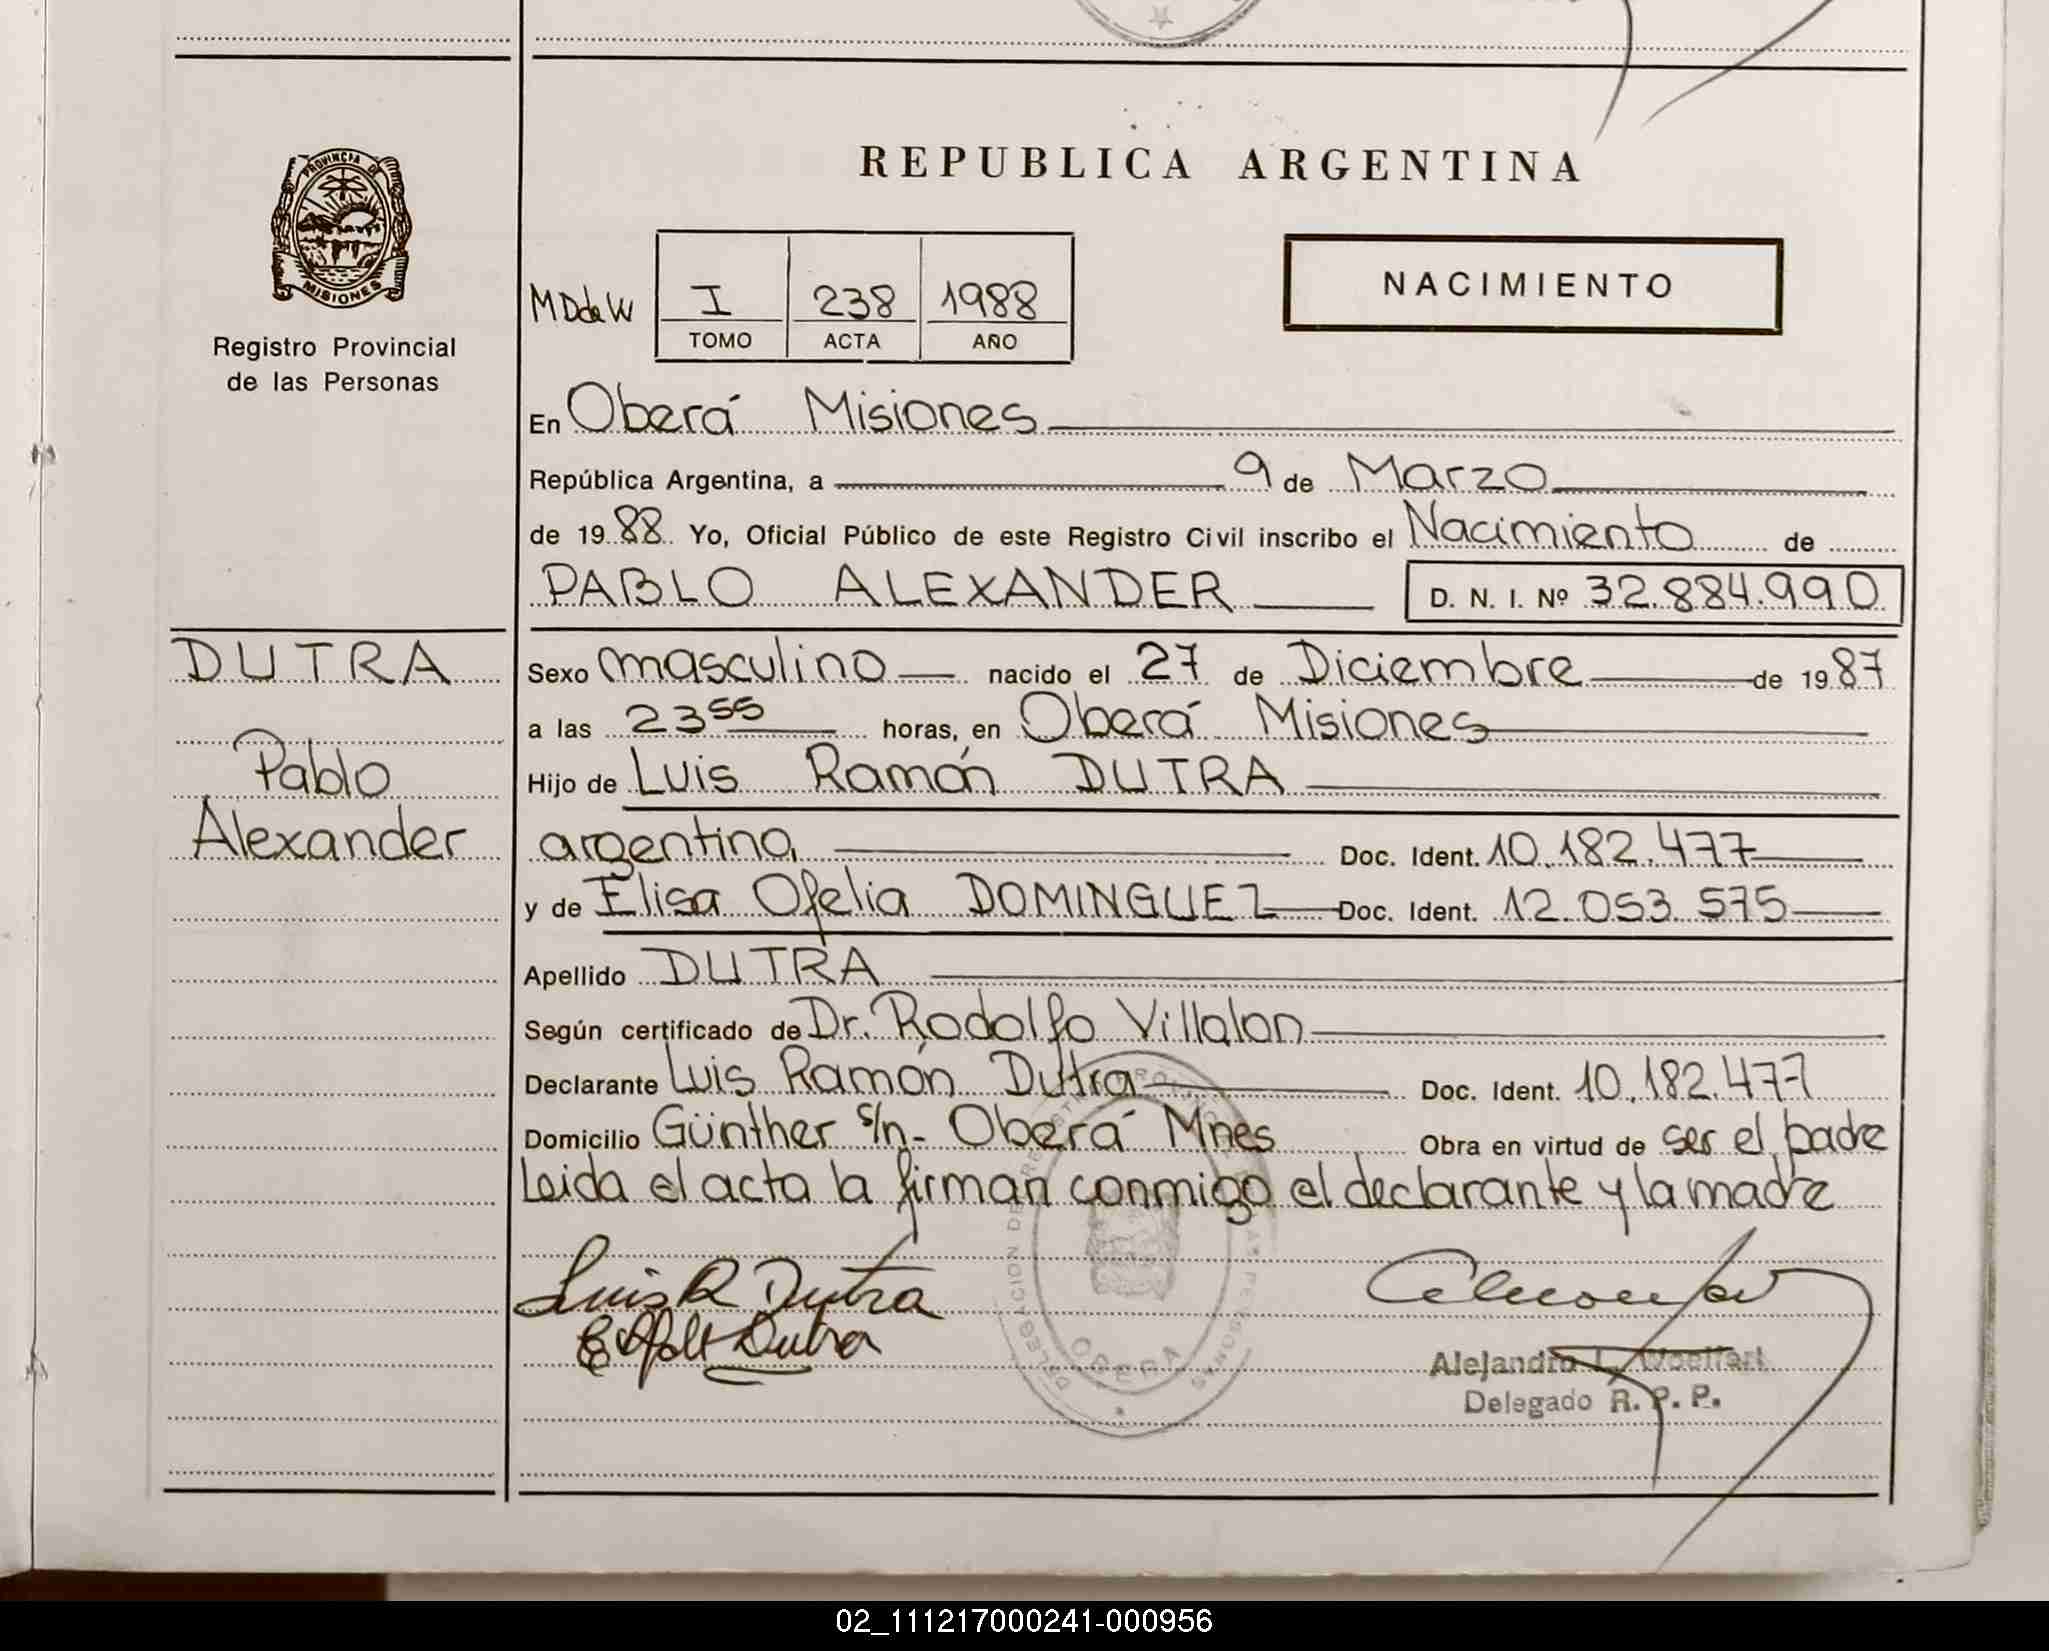 REPUBLICA ARGENTINA
PROVINCIA DE
MISIONES
Registro Provincial
de las Personas
MDdeW
I 238 1988
TOMO ACTA AÑO
NACIMIENTO
En Oberá Misiones
República Argentina, a 9 de Marzo
de 1988 Yo, Oficial Público de este Registro Civil inscribo el Nacimiento de
PABLO ALEXANDER D. N. I. Nº 32.884.990
DUTRA
Pablo
Alexander
Sexo masculino nacido el 27 de Diciembre de 1987
a las 23 55 horas, en Oberá Misiones
Hijo de Luis Ramón DUTRA
argentino, Doc. Ident. 10.182.477
y de Elisa Ofelia DOMINGUEZ Doc. Ident. 12.053.575
Apellido DUTRA
Según certificado de Dr. Rodolfo Villalon
Declarante Luis Ramón Dutra Doc. Ident. 10.182.477
Domicilio Günther s/n- Oberá Mnes Obra en virtud de ser el padre
Leida el acta la firman conmigo el declarante y la madre
Luis R Dutra
Dutra
DELEGACION DE REGISTRO PROVINCIAL DE LAS PERSONAS
OBERA
Alejandro L. Woelfert
Delegado R. P. P.
02_111217000241-000956